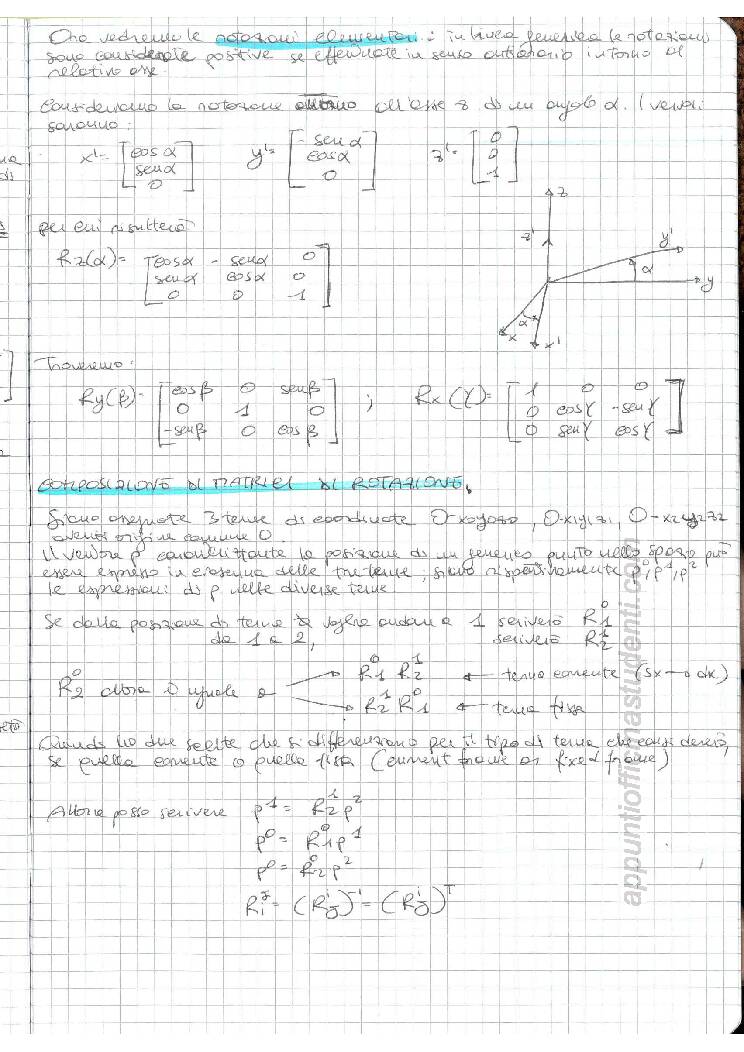 Ora vedremo le rotazioni elementari: in linea generica le rotazioni
sono considerate positive se effettuate in senso antiorario intorno al
relativo asse.
Consideriamo la rotazione attorno all'asse z di un angolo α. I versori
saranno:
x' = [cosα senα 0] y' = [-senα cosα 0] z' = [0 0 1]
per cui risulterà
Rz(α) = [cosα -senα 0
senα cosα 0
0 0 1]
z
z'
y'
α
y
α
x
x'
Troveremo:
Ry(β) = [cosβ 0 senβ ; Rx(γ) = [1 0 0
0 1 0 0 cosγ -senγ
-senβ 0 cosβ] 0 senγ cosγ]
COMPOSIZIONE DI MATRICI DI ROTAZIONE.
Siano assegnate 3 terne di coordinate O-x0y0z0, O-x1y1z1, O-x2y2z2
aventi origine comune O.
Il vettore p caratterizzante la posizione di un generico punto nello spazio può
essere espresso in ciascuna delle tre terne; siano rispettivamente p⁰, p¹, p²
le espressioni di p nelle diverse terne.
Se dalla posizione di terna 0 voglio andare a 1 scriverò R₁⁰
da 1 a 2, scriverò R₂¹
R₂⁰ allora è uguale a
R₁⁰ R₂¹ ← terna corrente (sx → dx)
R₂¹ R₁⁰ ← terna fissa
Quindi ho due scelte che si differenziano per il tipo di terna che considero,
se quella corrente o quella fissa (current frame or fixed frame)
Allora posso scrivere p¹ = R₂¹p²
p⁰ = R₁⁰p¹
p⁰ = R₂⁰p²
Rᵢʲ = (Rⱼⁱ)⁻¹ = (Rⱼⁱ)ᵀ
appuntiofficinastudenti.com